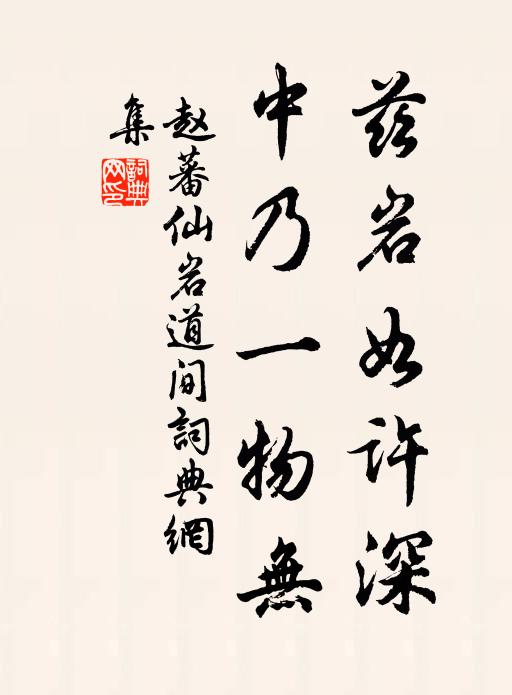 茲岩如許深
中乃一物無
赵蕃仙岩道间詞典網
集
詞典網印